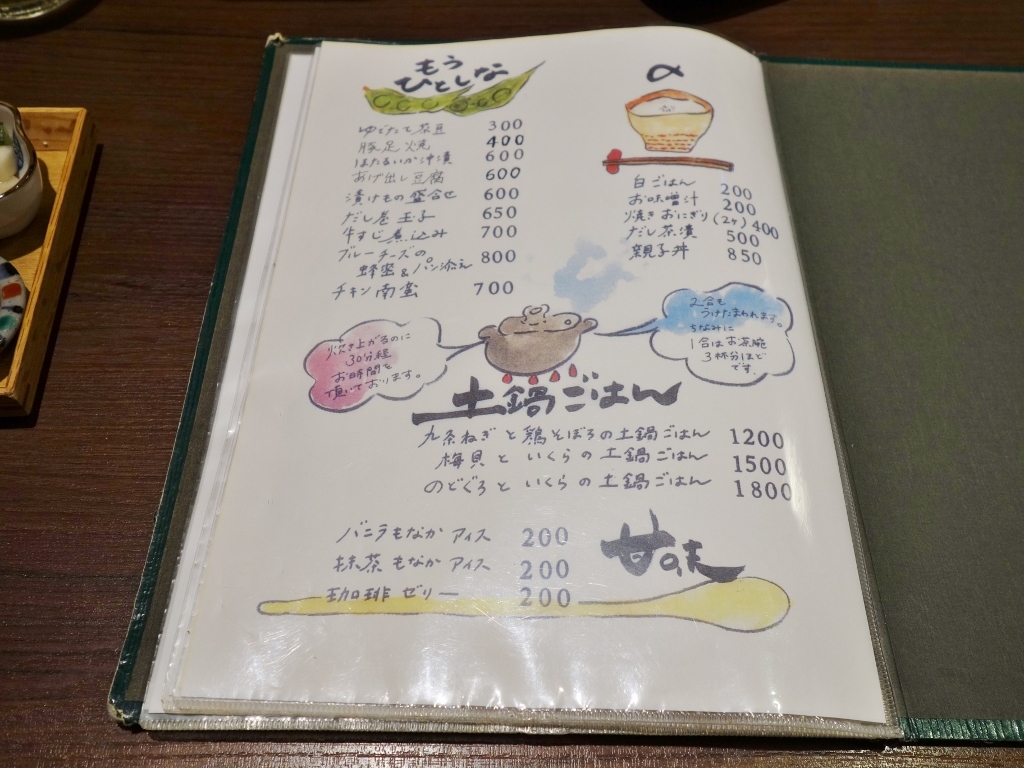 もう
ひとしな
ゆでたて茶豆 300
豚足焼 400
ほたるいか沖漬 600
あげ出し豆腐 600
漬けもの盛合せ 600
だし巻玉子 650
牛すじ煮込み 700
ブルーチーズの
蜂蜜&パン添え 800
チキン南蛮 700
〆
白ごはん 200
お味噌汁 200
焼きおにぎり(2ヶ) 400
だし茶漬 500
親子丼 850
炊き上がるのに
30分程
お時間を
頂いております。
2合も
うけたまわれます。
ちなみに
1合はお茶碗
3杯分ほど
です。
土鍋ごはん
九条ねぎと鶏そぼろの土鍋ごはん 1200
梅貝といくらの土鍋ごはん 1500
のどぐろといくらの土鍋ごはん 1800
甘味
バニラもなかアイス 200
抹茶もなかアイス 200
珈琲ゼリー 200